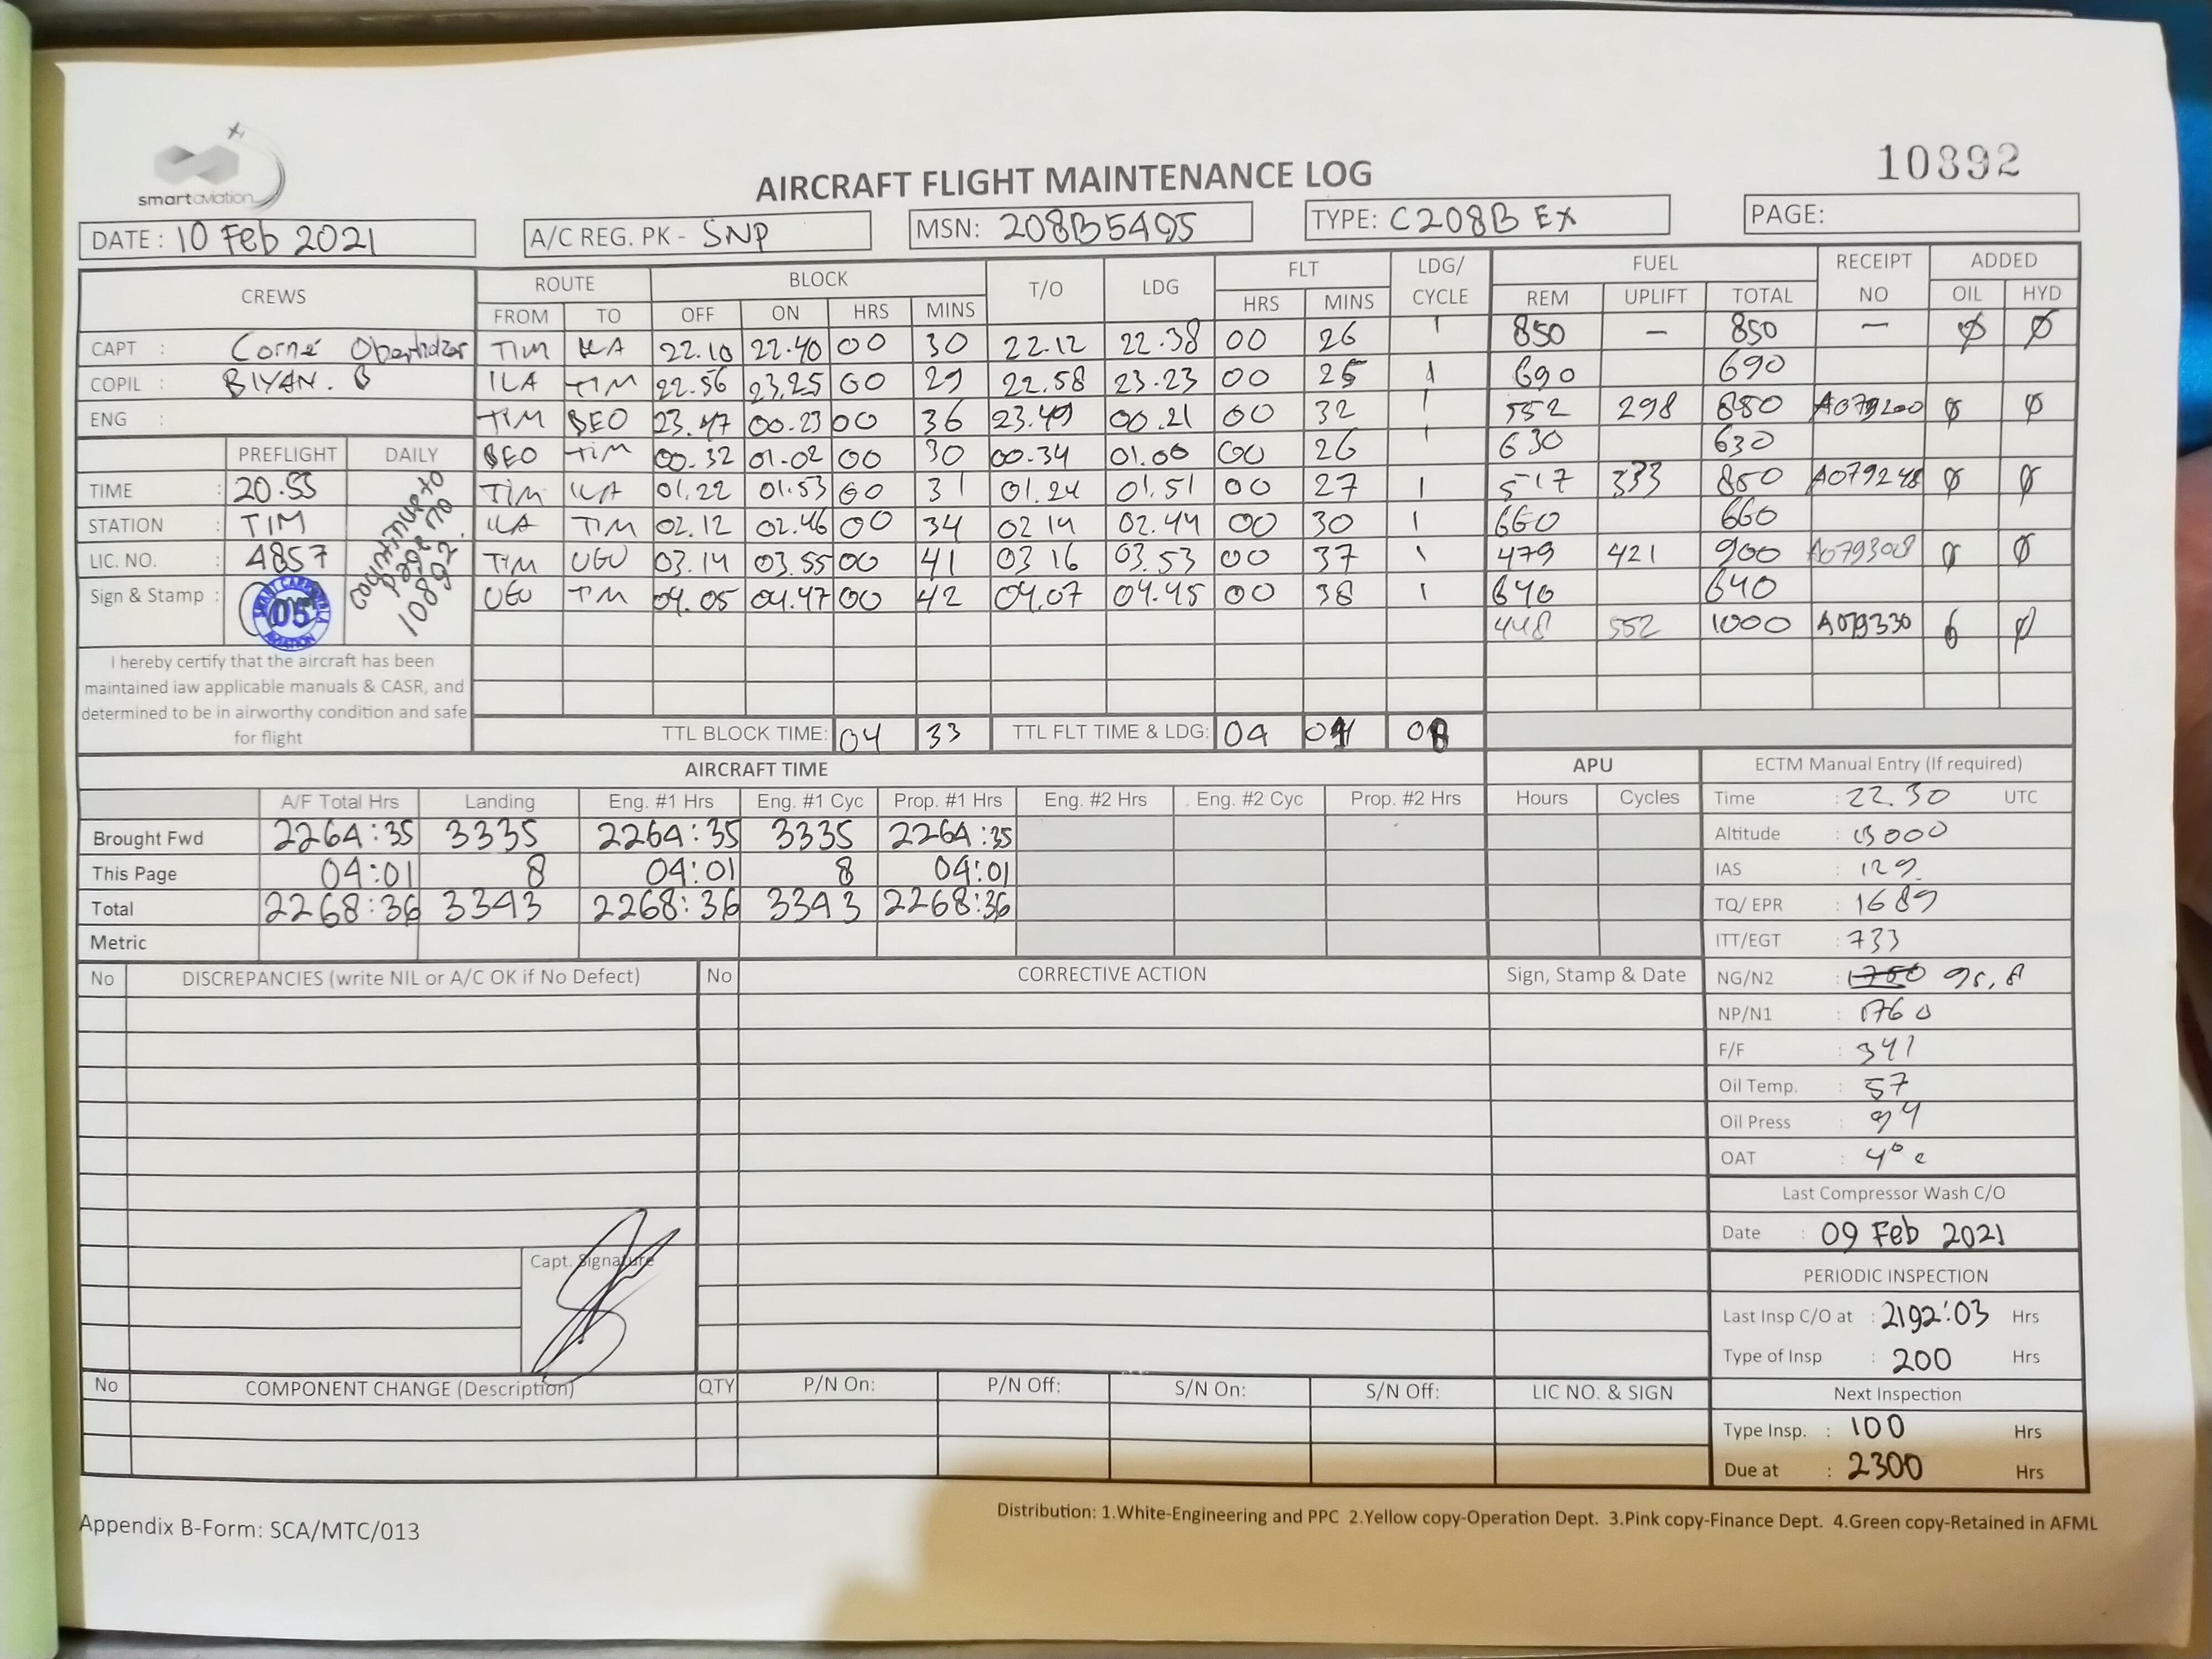 smart aviation
AIRCRAFT FLIGHT MAINTENANCE LOG
10892
DATE : 10 Feb 2021 A/C REG. PK - SNP MSN: 208B5495 TYPE: C208B EX PAGE:
CREWS ROUTE BLOCK T/O LDG FLT LDG/ CYCLE FUEL RECEIPT NO ADDED
FROM TO OFF ON HRS MINS HRS MINS REM UPLIFT TOTAL OIL HYD
CAPT : Corné TIM ILA 22.10 22.40 00 30 22.12 22.38 00 26 1 850 — 850 — Ø Ø
COPIL : BIYAN. B ILA TIM 22.56 23.25 00 29 22.58 23.23 00 25 1 690 690
ENG : TIM BEO 23.47 00.23 00 36 23.49 00.21 00 32 1 552 298 850 A079200 Ø Ø
BEO TIM 00.32 01.02 00 30 00.34 01.00 00 26 1 630 630
PREFLIGHT DAILY
TIME : 20.55 TIM ILA 01.22 01.53 00 31 01.24 01.51 00 27 1 517 333 850 A079248 Ø Ø
STATION : TIM ILA TIM 02.12 02.46 00 34 02 14 02.44 00 30 1 660 660
LIC. NO. : 4857 TIM UGU 03.14 03.55 00 41 03 16 03.53 00 37 1 479 421 900 A079308 Ø Ø
Sign & Stamp : 05 AVIATION UGU TIM 04.05 04.47 00 42 04.07 04.45 00 38 1 640 640
continue to page no 10892.
448 552 1000 A079330 Ø
I hereby certify that the aircraft has been
maintained iaw applicable manuals & CASR, and
determined to be in airworthy condition and safe
for flight
TTL BLOCK TIME: 04 33 TTL FLT TIME & LDG: 04 01 08
AIRCRAFT TIME APU ECTM Manual Entry (If required)
A/F Total Hrs Landing Eng. #1 Hrs Eng. #1 Cyc Prop. #1 Hrs Eng. #2 Hrs Eng. #2 Cyc Prop. #2 Hrs Hours Cycles Time : 22.30 UTC
Brought Fwd 2264:35 3335 2264:35 3335 2264:35 Altitude : 13000
This Page 04:01 8 04:01 8 04:01 IAS : 129
Total 2268:36 3343 2268:36 3343 2268:36 TQ/ EPR : 1689
Metric ITT/EGT : 733
No DISCREPANCIES (write NIL or A/C OK if No Defect) No CORRECTIVE ACTION Sign, Stamp & Date NG/N2 : 1760 95,8
NP/N1 : 1760
F/F : 341
Oil Temp. : 57
Oil Press : 94
OAT : 4° c
Last Compressor Wash C/O
Date : 09 Feb 2021
Capt. Signature
PERIODIC INSPECTION
Last Insp C/O at : 2192:03 Hrs
Type of Insp : 200 Hrs
No COMPONENT CHANGE (Description) QTY P/N On: P/N Off: S/N On: S/N Off: LIC NO. & SIGN Next Inspection
Type Insp. : 100 Hrs
Due at : 2300 Hrs
Appendix B-Form: SCA/MTC/013
Distribution: 1.White-Engineering and PPC 2.Yellow copy-Operation Dept. 3.Pink copy-Finance Dept. 4.Green copy-Retained in AFML